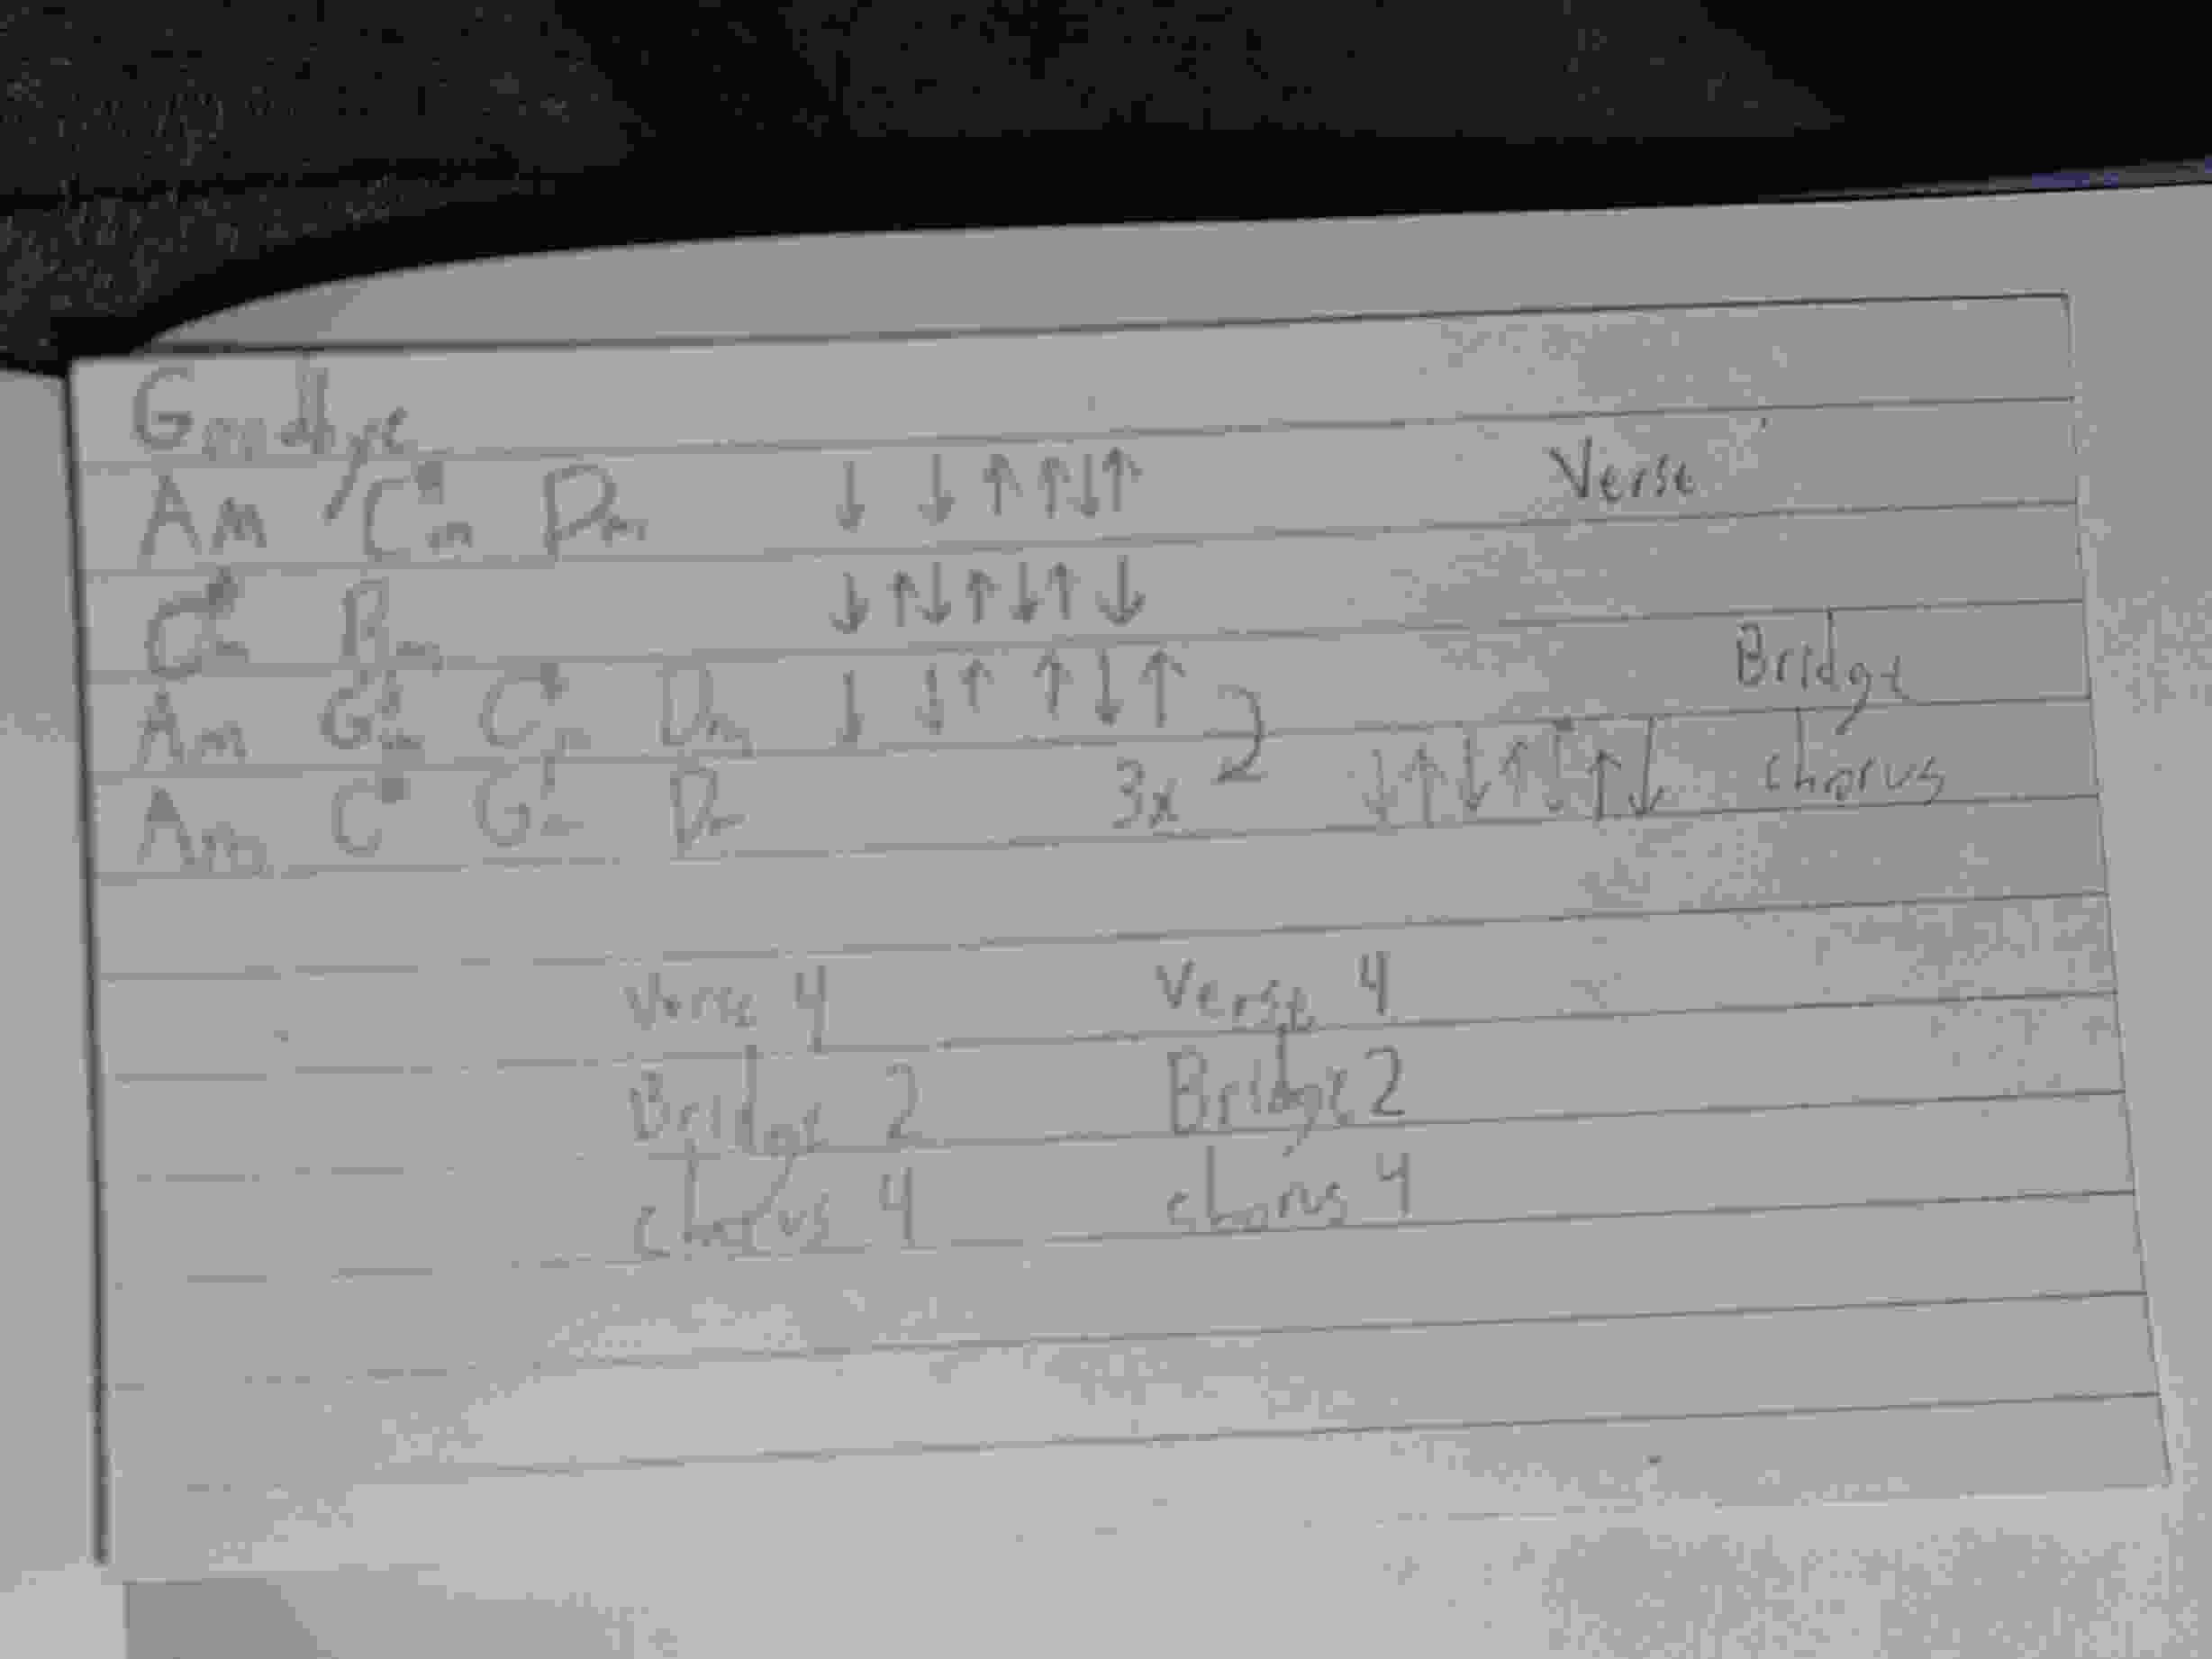 Am C#m Dm ↓ ↓ ↑ ↑ ↓ ↑ Verse
C#m Bm ↓ ↑ ↓ ↑ ↓ ↑ ↓
Am G#m C#m Dm ↓ ↓ ↑ ↑ ↓ ↑ Bridge
Am C# 3x ↓ ↑ ↓ ↑ ↓ ↑ ↓ chorus
Verse 4 Verse 4
Bridge 2 Bridge 2
chorus 4 chorus 4